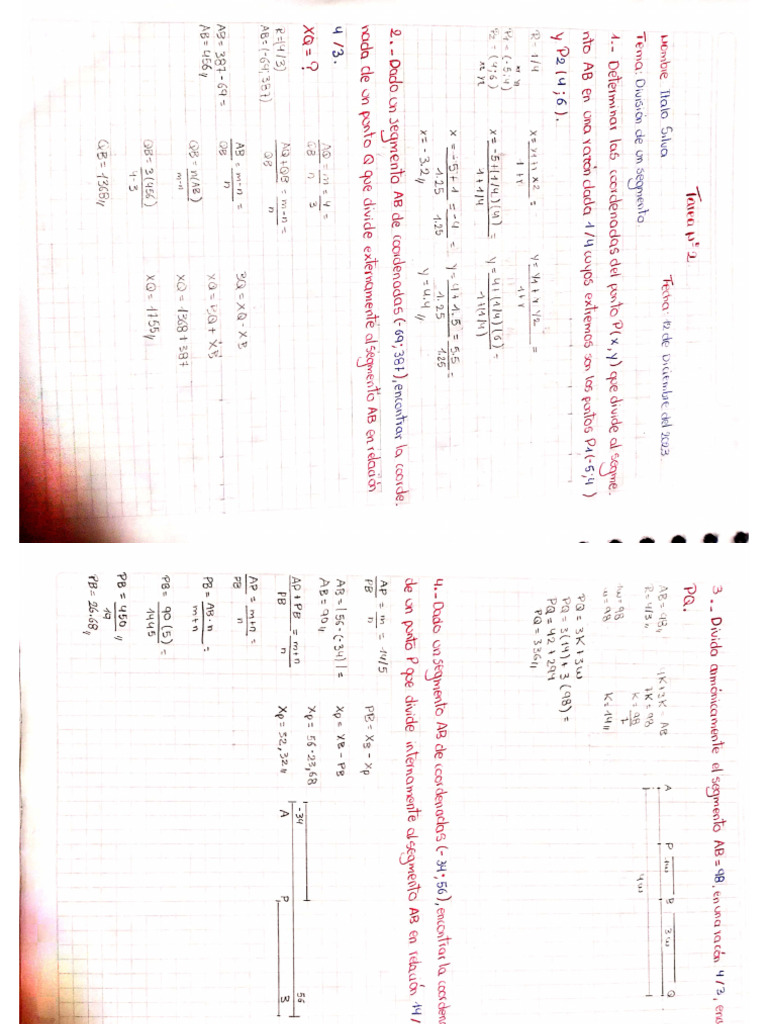 Tarea N° 2
Nombre Italo Silva
Fecha: 12 de Diciembre del 2023
Tema: División de un segmento
1.- Determinar las coordenadas del punto P(x,y) que divide al segme.
nto AB en una razón dada 1/4 cuyos extremos son los puntos P1(-5;4)
y P2(4;6).
R = 1/4
P1 = (-5;4)
P2 = (4;6)
x = x1+r x2 =
1+r
y = y1+r y2 =
1+r
x = -5+(1/4)(4) =
1+1/4
y = 4+(1/4)(6) =
1+(1/4)
x = -5+1 = -4 =
1.25 1.25
y = 4+1.5 = 5.5 =
1.25 1.25
x = -3.2//
y = 4.4//
2.- Dado un segmento AB de coordenadas (-69;387), encontrar la coorde.
nada de un punto Q que divide externamente al segmento AB en relación
4/3.
XQ = ?
R=(4/3)
AB=(-69;387)
AB = 387-69 =
AB = 456//
AQ = m = 4
QB n 3
AQ+QB = m-n =
QB n
AB = m-n =
QB n
QB = n(AB)
m-n
QB = 3(456)
4-3
QB = 1368//
BQ = XQ - XB
XQ = BQ + XB
XQ = 1368+387
XQ = 1755//
3.- Divido armónicamente el segmento AB = 98. en una razón 4/3, enc
PQ.
AB = 98//
R = 4/3//
w = 98
4K+3K = AB
7K = 98
K = 98
7
K = 14//
PQ = 3K+3w
PQ = 3(14)+3(98) =
PQ = 42+294
PQ = 336//
A P B Q
3w
4w
4.- Dado un segmento AB de coordenadas (-34;56), encontrar la coorden
de un punto P que divide internamente al segmento AB en relación 14/
AP = m = 14/5
PB n
AB = |56-(-34)| =
AB = 90//
AP+PB = m+n
PB n
AP = m+n =
PB n
PB = AB·n =
m+n
PB = 90(5) =
14+5
PB = 450 //
19
PB = 26.68//
PB = XB - Xp
Xp = XB - PB
Xp = 56-23,68
Xp = 32,32//
-34 56
A P B